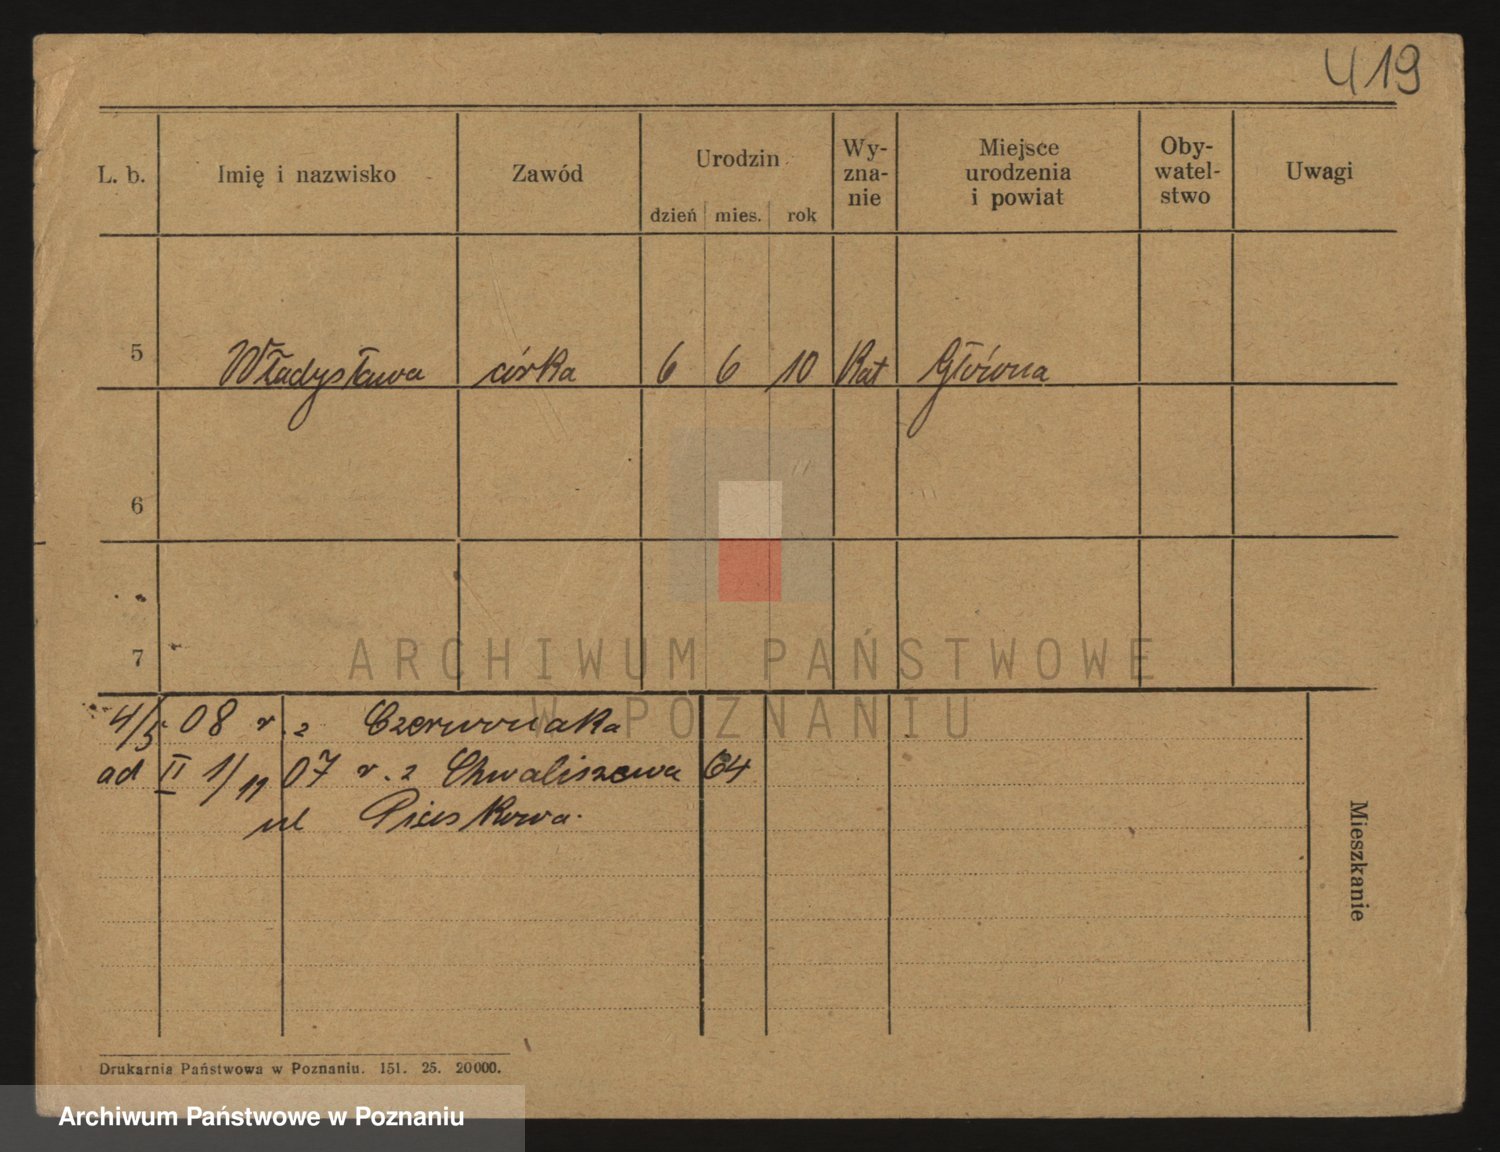 419
L. b. Imię i nazwisko Zawód Urodzin Wy-zna-nie Miejsce urodzenia i powiat Oby-watel-stwo Uwagi
dzień mies. rok
5 Władysława córka 6 6 10 Kat Główna
6
7
ARCHIWUM PAŃSTWOWE
W POZNANIU
4/5 08 r. z Czerwonaka
ad II 1/11 07 r. z Chwaliszewa 64
ul Piaskowa.
Mieszkanie
Drukarnia Państwowa w Poznaniu. 151. 25. 20000.
Archiwum Państwowe w Poznaniu